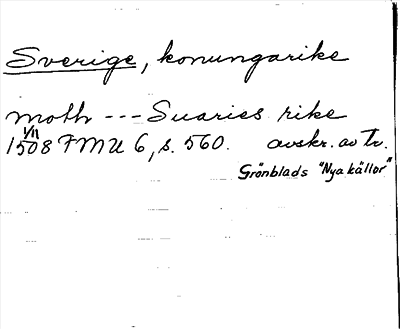 Sverige, konungarike
moth --- Suaries rike
1/11
1508 FMU 6, s. 560. avskr. av tr.
Grönblads "Nya källor"